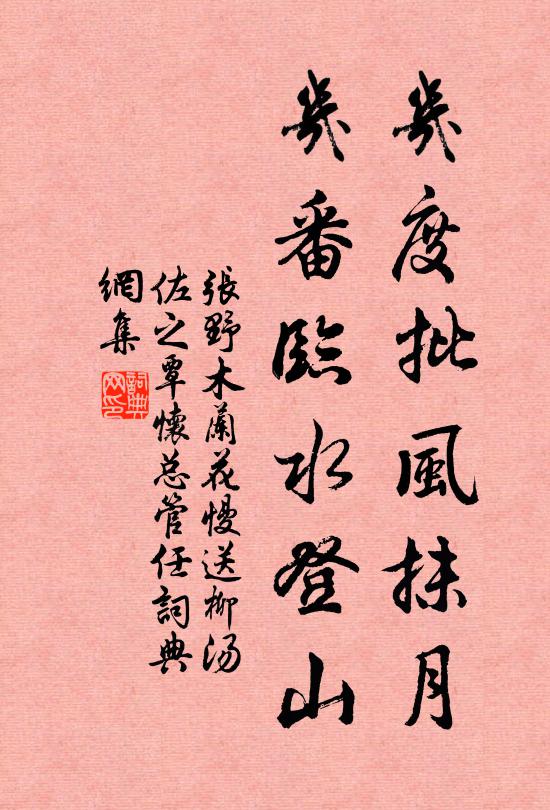 幾度批風抹月
幾番臨水登山
張野木蘭花慢送柳湯
佐之覃懷总管任詞典
網集
詞典
网印